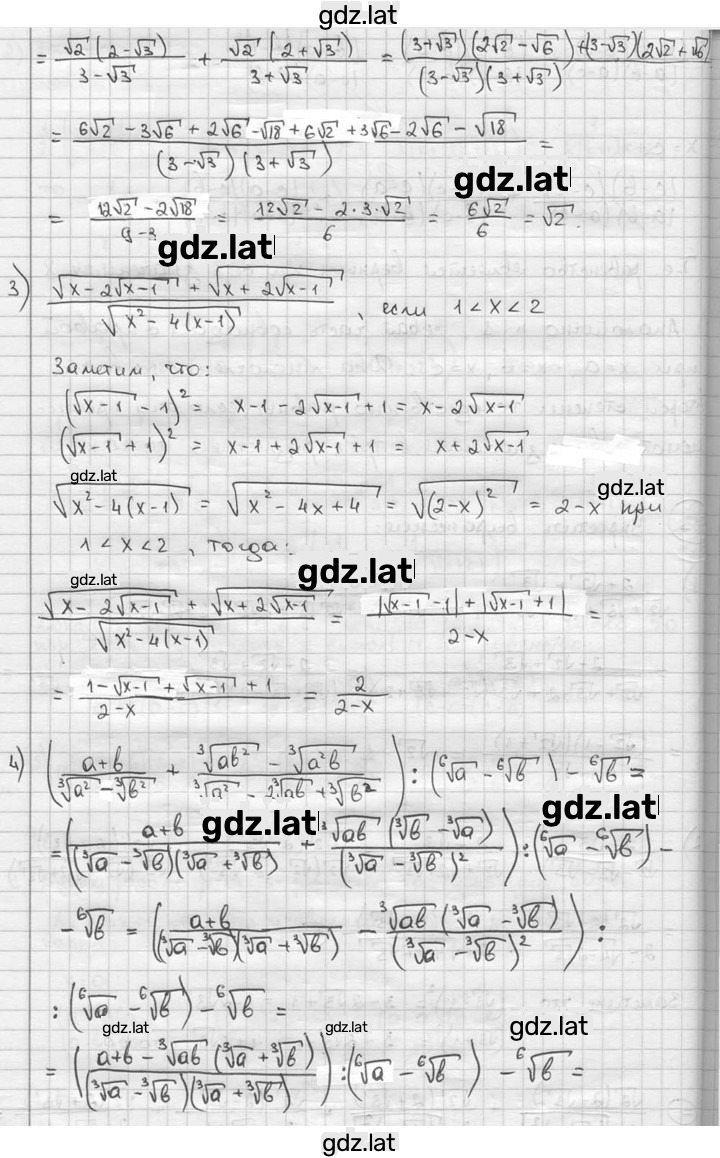 gdz.lat
= √2 (2-√3) / (3-√3) + √2 (2+√3) / (3+√3) = ((3+√3)(2√2-√6)+(3-√3)(2√2+√6)) / ((3-√3)(3+√3))
= (6√2 - 3√6 + 2√6 - √18 + 6√2 + 3√6 - 2√6 - √18) / ((3-√3)(3+√3)) =
gdz.lat
= (12√2 - 2√18) / (9-3) = (12√2 - 2·3·√2) / 6 = 6√2 / 6 = √2.
gdz.lat
3) (√(x-2√(x-1)) + √(x+2√(x-1))) / √(x²-4(x-1)), если 1<x<2
Заметим, что:
(√(x-1) - 1)² = x-1-2√(x-1)+1 = x-2√(x-1)
(√(x-1) + 1)² = x-1+2√(x-1)+1 = x+2√(x-1)
gdz.lat
gdz.lat
√(x²-4(x-1)) = √(x²-4x+4) = √((2-x)²) = 2-x при
1<x<2, тогда:
gdz.lat
(√(x-2√(x-1)) + √(x+2√(x-1))) / √(x²-4(x-1)) = (|√(x-1)-1|+|√(x-1)+1|) / (2-x) =
= (1-√(x-1)+√(x-1)+1) / (2-x) = 2 / (2-x)
4) ((a+b) / (∛a²-∛b²) + (∛ab² - ∛a²b) / (∛a² - 2∛ab + ∛b²)) : (⁶√a - ⁶√b) - ⁶√b =
gdz.lat
gdz.lat
= ((a+b) / ((∛a-∛b)(∛a+∛b)) + ∛ab (∛b-∛a) / (∛a-∛b)²) : (⁶√a - ⁶√b) -
- ⁶√b = ((a+b) / ((∛a-∛b)(∛a+∛b)) - ∛ab (∛a-∛b) / (∛a-∛b)²) :
: (⁶√a - ⁶√b) - ⁶√b =
gdz.lat
gdz.lat
gdz.lat
= ((a+b-∛ab (∛a+∛b)) / ((∛a-∛b)(∛a+∛b))) : (⁶√a - ⁶√b) - ⁶√b =
gdz.lat